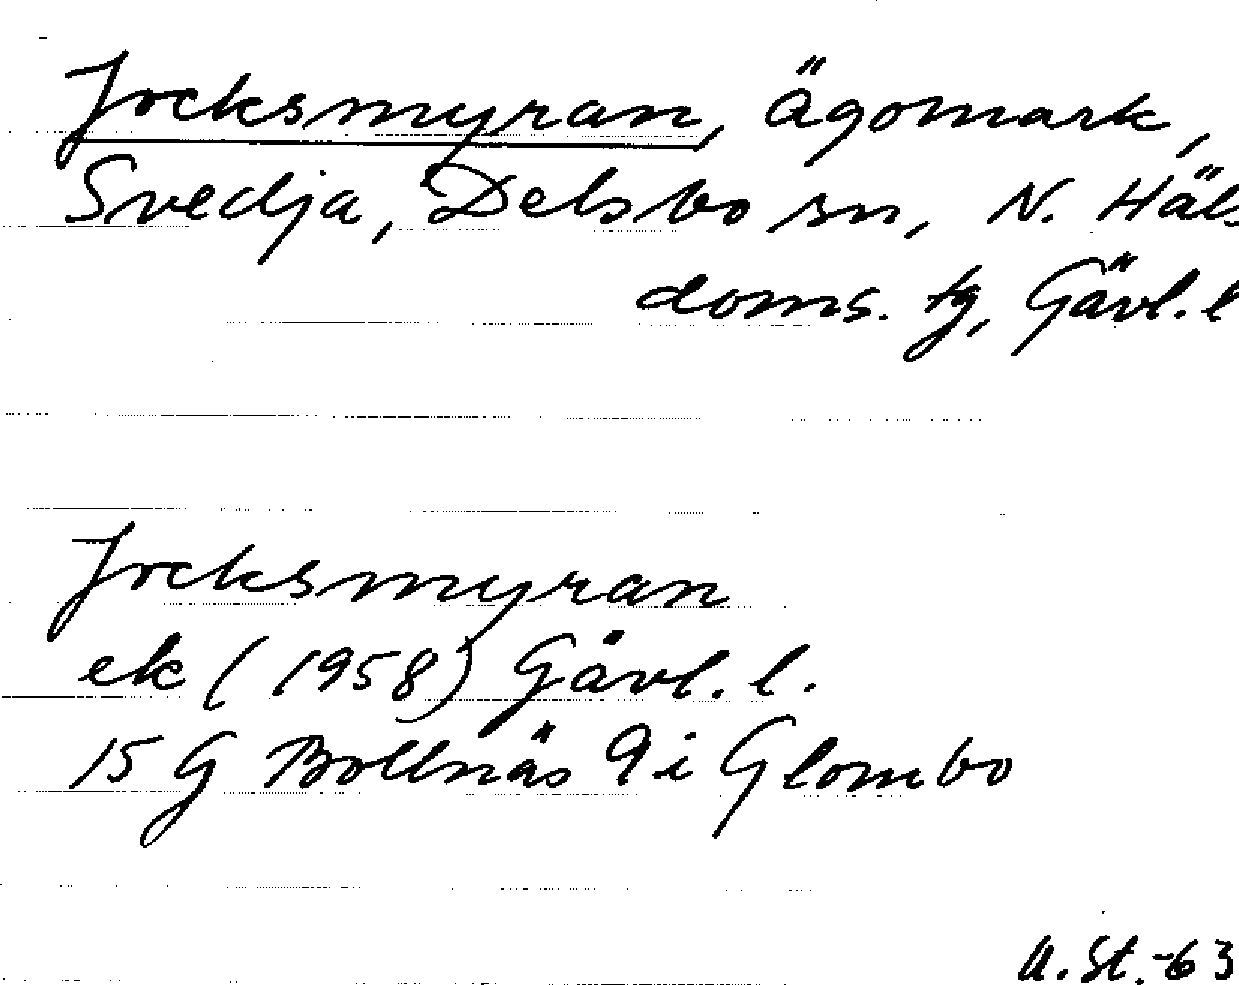 Jocksmyran, ägomark,
Svedja, Delsbo sn, N. Häls
doms. tg, Gävl. l
Jocksmyran
ek (1958) Gävl. l.
15 G Bollnäs 9 i Glombo
U. St. -63